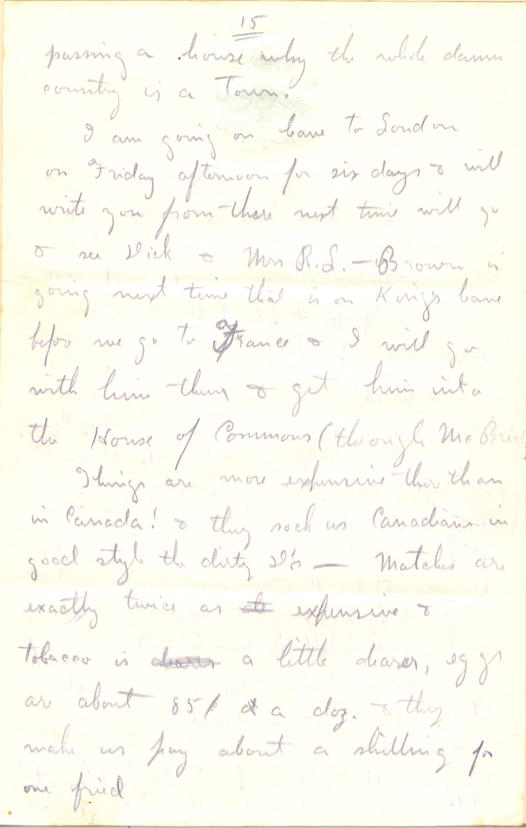 15
passing a house why the whole damn
country is a Town.
I am going on leave to London
on Friday afternoon for six days & will
write you from there next time will go
& see Dick & Mrs R.S. — Brown is
going next time that is on Kings leave
before we go to France & I will go
with him then & get him into
the House of Commons (through McBride
Things are more expensive here than
in Canada! & they soak us Canadians in
good style the dirty D's — Matches are
exactly twice as expensive &
tobacco is a little dearer, eggs
are about 85¢ a doz. & they
make us pay about a shilling for
one fried